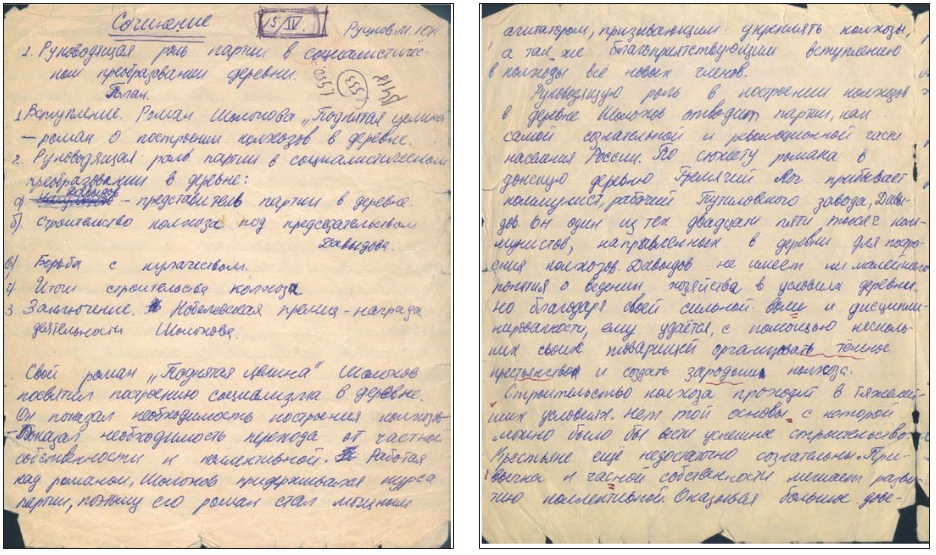 Сочинение
15/IV.
1. Руководящая роль партии в социалистичес-
ком преобразовании деревни.
План.
1. Вступление. Роман Шолохова „Поднятая целина
– роман о построении колхозов в деревне.
2. Руководящая роль партии в социалистическом
преобразовании в деревне:
а) Давыдов – представитель партии в деревне.
б) строительство колхоза под председательством
Давыдова.
в) Борьба с кулачеством.
г) Итоги строительства колхоза
3. Заключение. Нобелевская премия – награда
деятельности Шолохова.
Свой роман „Поднятая целина" Шолохов
посвятил построению социализма в деревне.
Он показал необходимость построения колхозов
– Показал необходимость перехода от частной
собственности к коллективной. Работая
над романом, Шолохов придерживался курса
партии, поэтому его роман стал мощным
агитатором, призывающим укреплять колхозы,
а так же благоприятствующим вступлению
в колхозы всё новых членов.
Руководящую роль в построении колхозов
в деревне Шолохов отводит партии, как
самой сознательной и революционной части
населения России. По сюжету романа в
донскую деревню Гремячий Лог прибывает
коммунист, рабочий Путиловского завода, Давы-
дов. Он один из тех двадцати пяти тысяч ком-
мунистов, направленных в деревни для постро-
ения колхозов. Давыдов не имеет ни малейшего
понятия о ведении хозяйства в условиях деревни.
Но благодаря своей сильной воли и дисципли-
нированности, ему удаётся, с помощью несколь-
ких своих товарищей организовать тёмное
крестьянство и создать зародыш колхоза.
Строительство колхоза проходит в тяжелей-
ших условиях. Нет той основы, с которой
можно было бы вести успешное строительство.
Крестьяне ещё недостаточно сознательны. При-
вычка к часной собственности мешает разви-
тию коллективной. Оказывая большое дове-